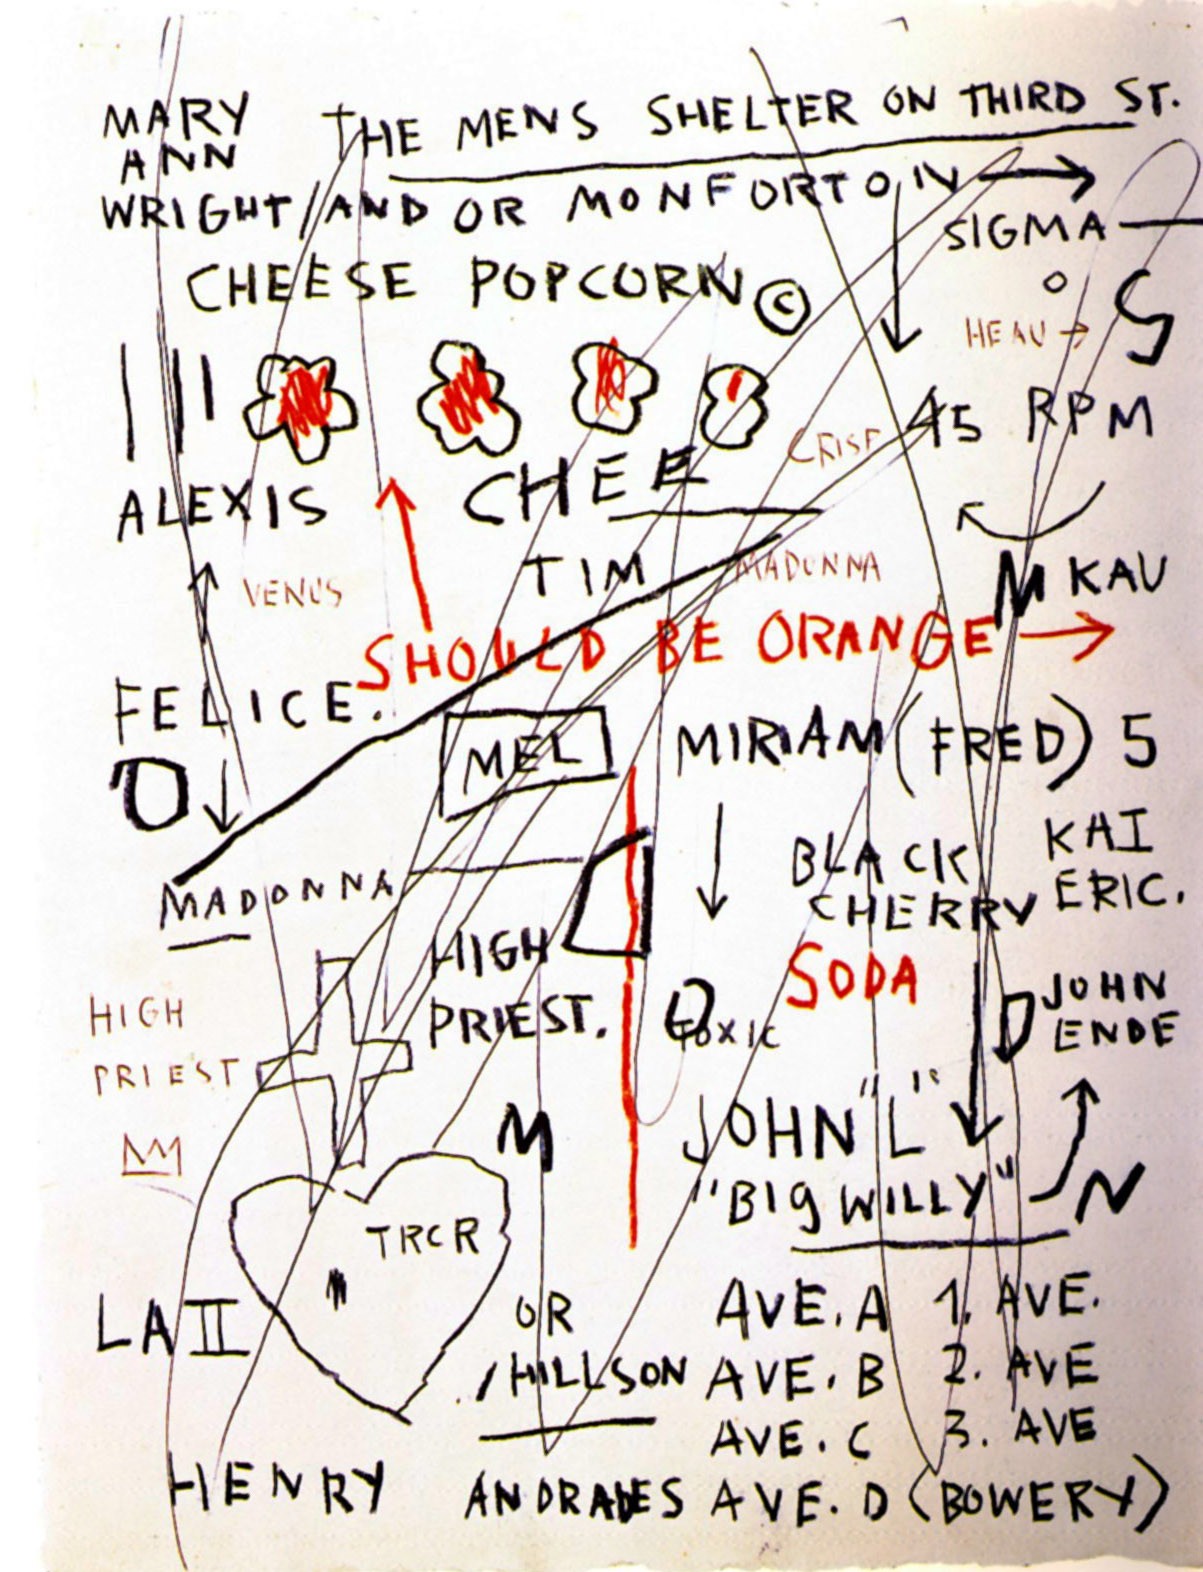 MARY
ANN
THE MENS SHELTER ON THIRD ST.
WRIGHT/AND OR MONFORTO, IV
SIGMA
CHEESE POPCORN ©
O
S
HEAU →
45 RPM
CRISP
ALEXIS
CHEE
TIM
MADONNA
M KAU
VENUS
SHOULD BE ORANGE →
FELICE.
MEL
MIRIAM (FRED) 5
O
BLACK
CHERRY
SODA
KAI
ERIC.
MADONNA
HIGH
PRIEST.
HIGH
PRIEST
TOXIC
D
JOHN
ENDE
M
JOHN "L"
"BIG WILLY"
N
TRCR
LA II
OR
/HILLSON
AVE. A 1. AVE.
AVE. B 2. AVE
AVE. C 3. AVE
HENRY
ANDRADES AVE. D (BOWERY)